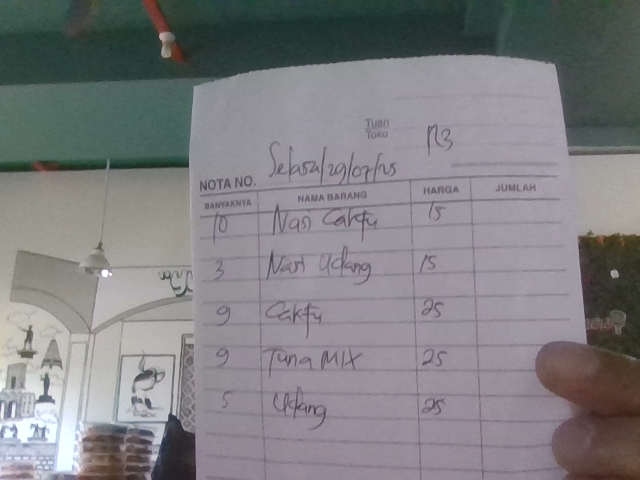 Tuan
Toko
R3
Selasa/29/07/25
NOTA NO.
BANYAKNYA NAMA BARANG HARGA JUMLAH
10 Nasi Cakfu 15
3 Nasi Udang 15
9 Cakfu 25
9 Tuna MIX 25
5 Udang 25